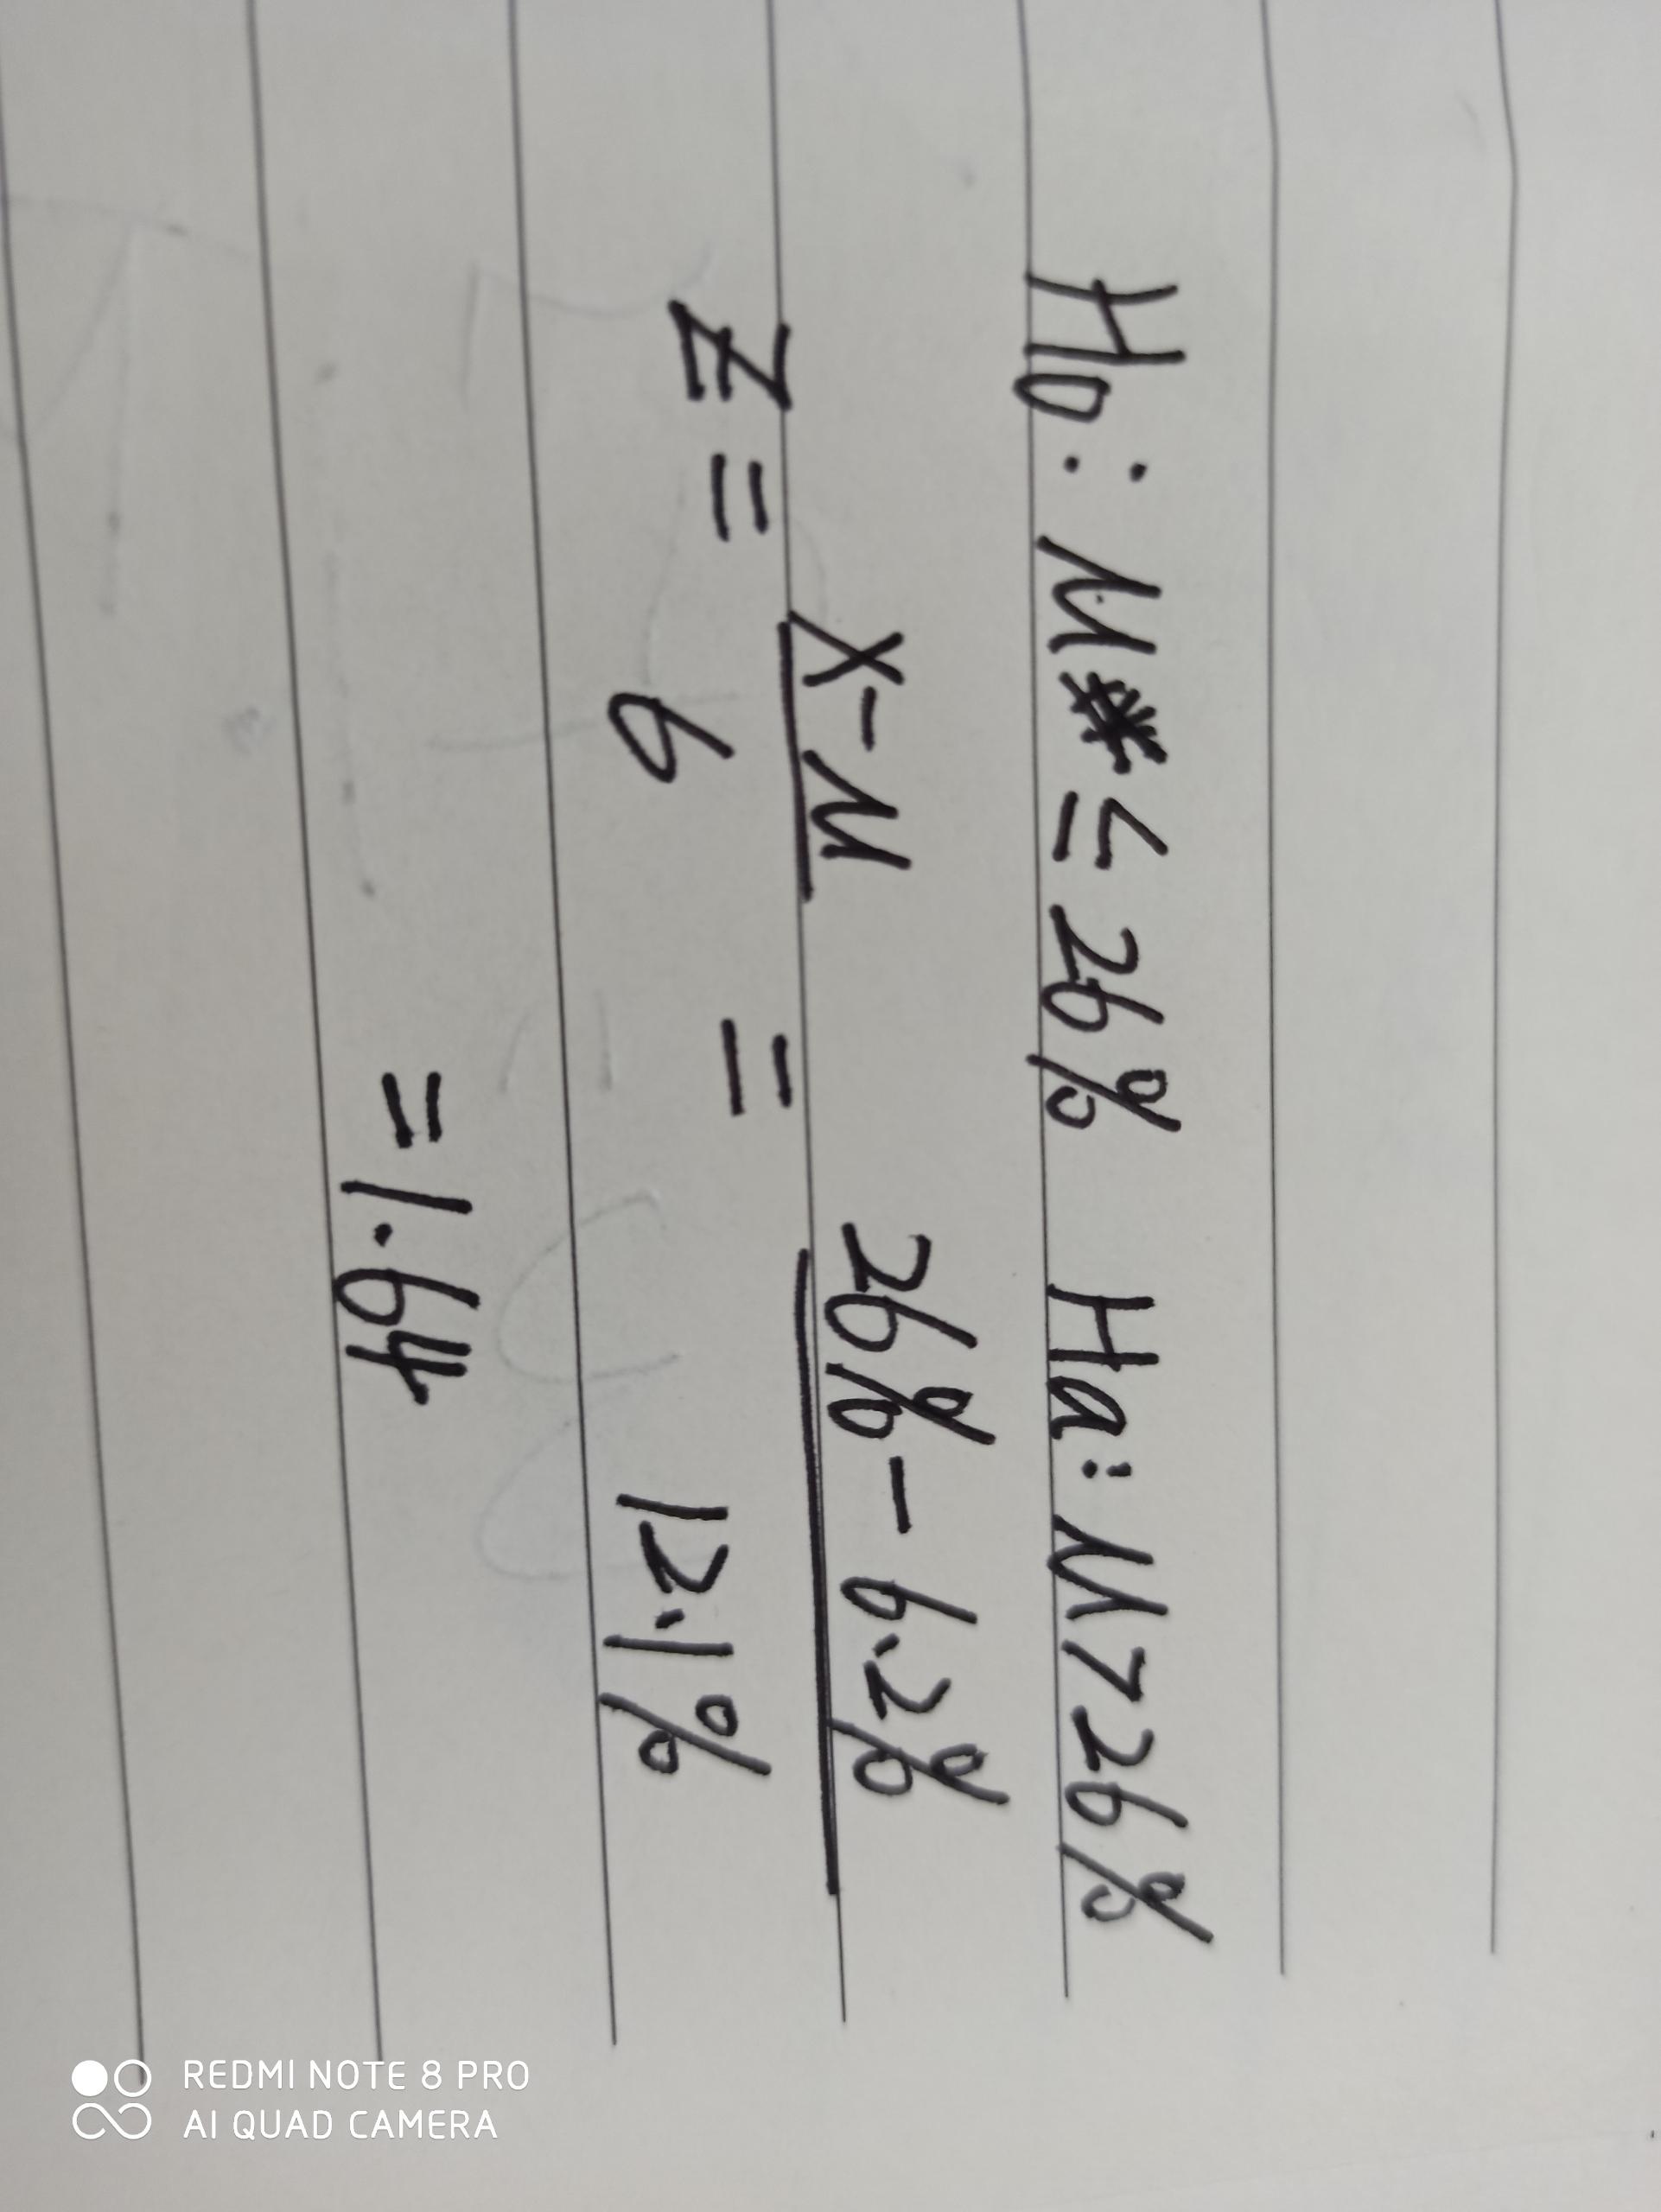 H0: μ ≤ 26% Ha: μ > 26%
z = x-μ = 26% - 6.2%
σ 12.1%
= 1.64
REDMI NOTE 8 PRO
AI QUAD CAMERA